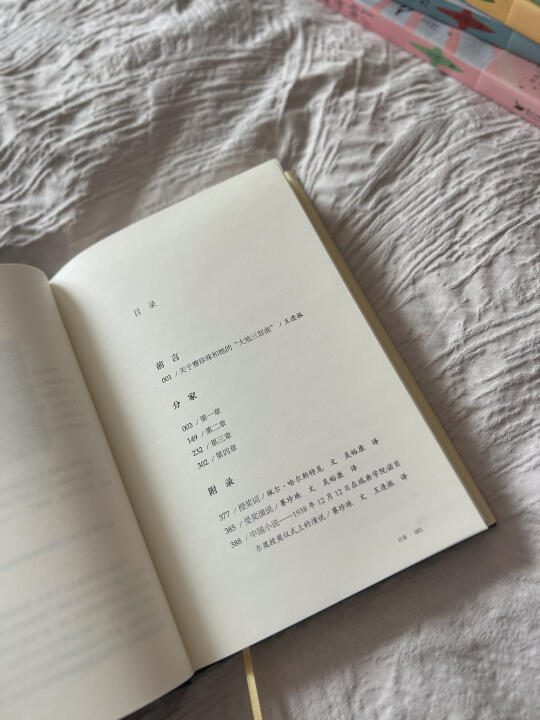 目录
前言
001 / 关于赛珍珠和她的“大地三部曲” / 王逢振
分家
003 / 第一章
149 / 第二章
232 / 第三章
302 / 第四章
附录
377 / 授奖词 / 佩尔·哈尔斯特龙 文 吴裕康 译
385 / 受奖演说 / 赛珍珠 文 吴裕康 译
388 / 中国小说——1938年12月12日在瑞典学院诺贝
尔奖授奖仪式上的演说 / 赛珍珠 文 王逢振 译
目录 · 001 ·